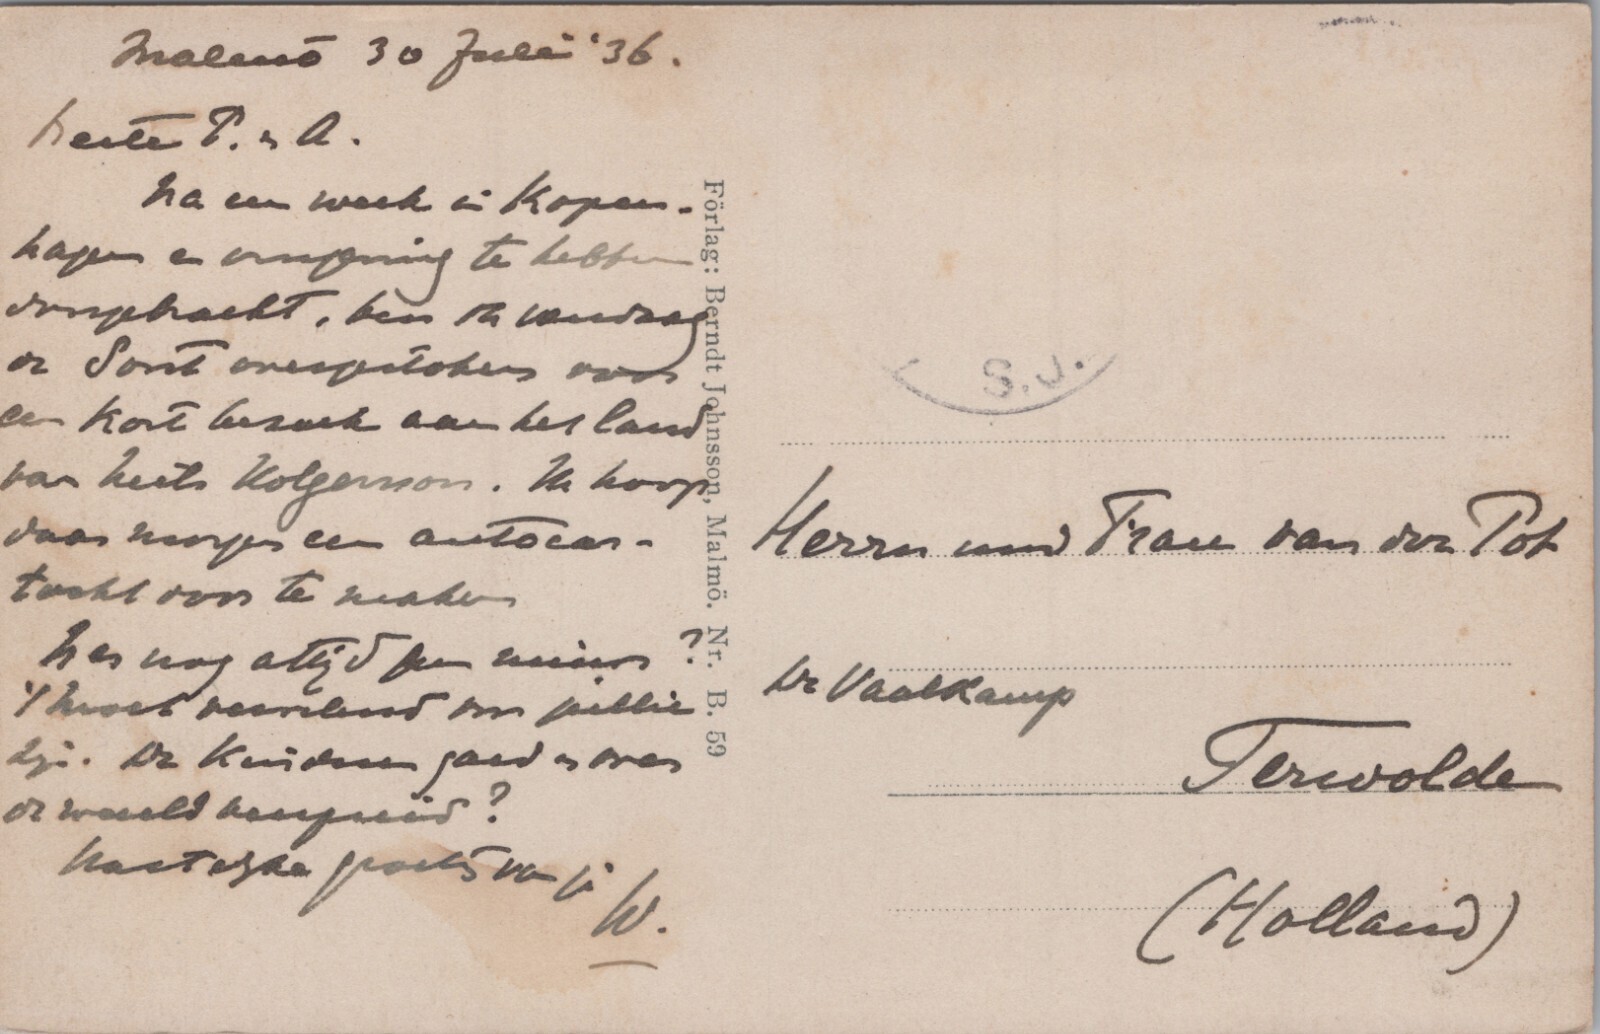 Malmö 30 Juli '36.
Beste P. en A.
Na een week in Kopen-
hagen en omgeving te hebben
doorgebracht, ben ik vandaag
de Sont overgestoken voor
een kort bezoek aan het land
van Niels Holgersson. Ik hoop
daar morgen een autocar-
tocht door te maken
Is er nog altijd geen nieuws?
't Moet vervelend voor jullie
zijn. De Kinderen goed en over
de wereld verspreid?
Hartelijke groeten van je
W.
Förlag: Berndt Johnsson, Malmö. Nr. B. 59
S.J.
Herrn und Frau van der Pot
De Vaalkamp
Terwolde
(Holland)